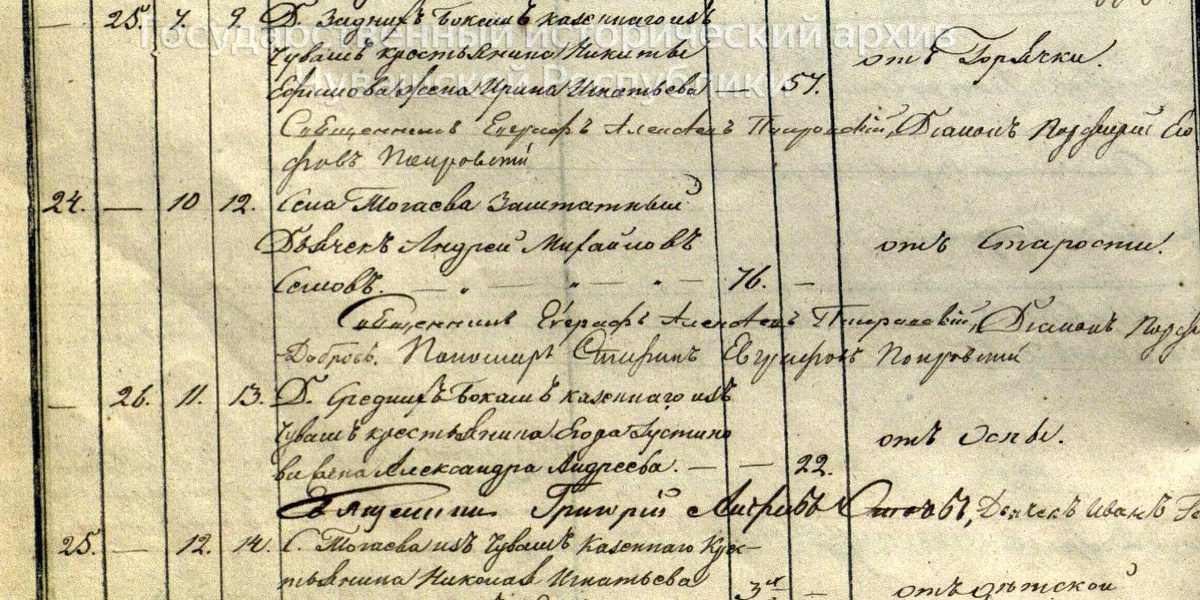 Государственный исторический архив
Чувашской Республики
— 25. 7. 9. Д. Заднихъ Бокашъ казеннаго изъ
Чувашъ крестьянина Никиты
Ефимова жена Ирина Игнатьева — 57. отъ Горячки.
Священникъ Евграфъ Алексѣевъ Покровскій, Діаконъ Порфирій
Покровскій
24. — 10 12. Села Тогаева Заштатный
Дьячекъ Андрей Михайловъ отъ Старости.
Семовъ. — " — " — " — 76. —
Священникъ Евграфъ Алексѣевъ Покровскій, Діаконъ
Пономарь Стефанъ Евграфовъ Покровскій
— 26. 11. 13. Д. Среднихъ Бокашъ казеннаго изъ
Чувашъ крестьянина Егора Густино
ва жена Александра Андреева. — — 22. отъ Оспы.
Священникъ Григорій Дьячекъ Иванъ
25. — 12. 14. С. Тогаева изъ Чувашъ Казеннаго Крес-
тьянина Николая Игнатьева 3 — отъ дѣтской